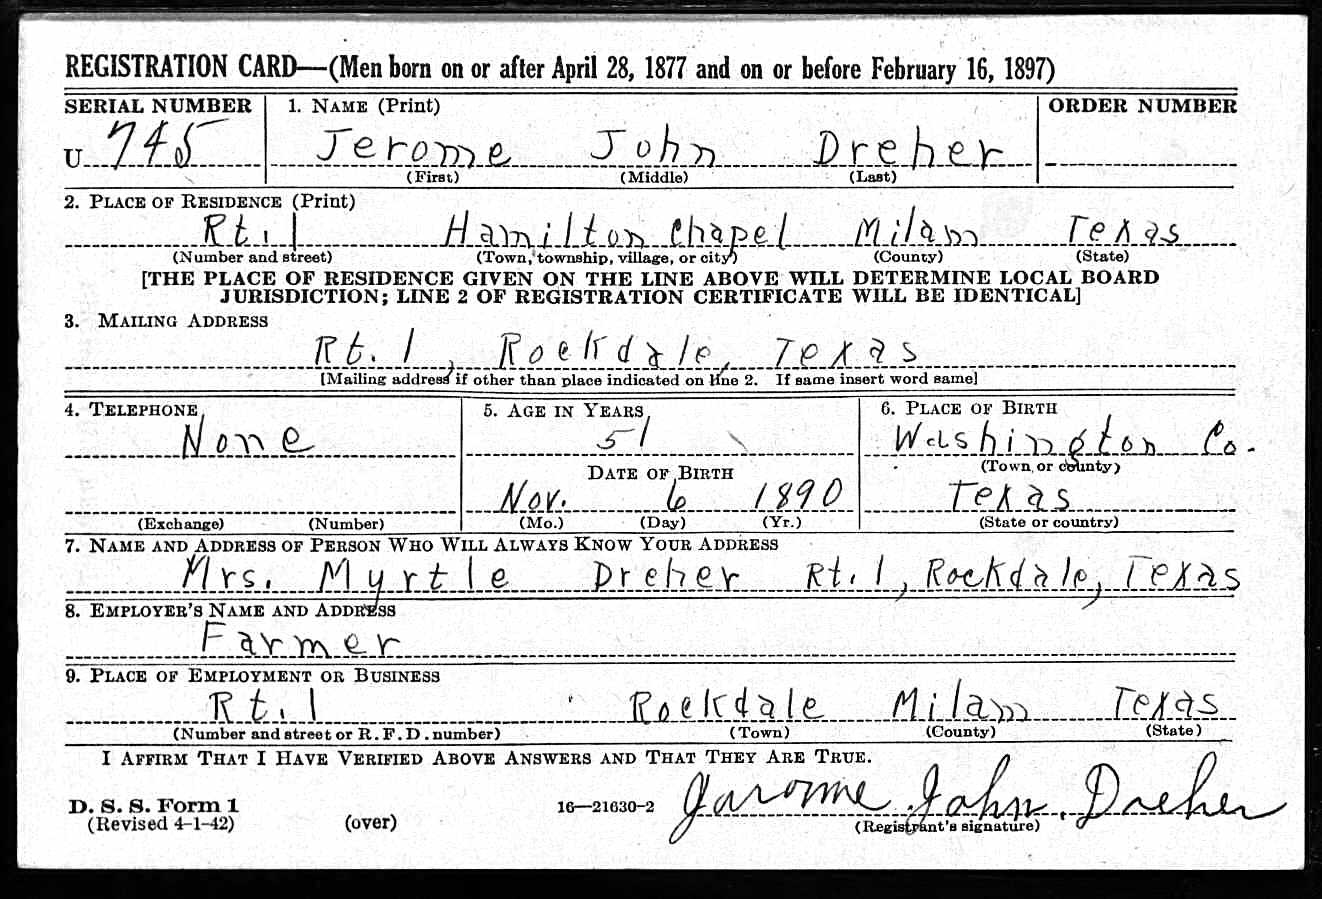 REGISTRATION CARD—(Men born on or after April 28, 1877 and on or before February 16, 1897)
SERIAL NUMBER 1. NAME (Print) ORDER NUMBER
U 745 Jerome John Dreher
(First) (Middle) (Last)
2. PLACE OF RESIDENCE (Print)
Rt. 1 Hamilton Chapel Milam Texas
(Number and street) (Town, township, village, or city) (County) (State)
[THE PLACE OF RESIDENCE GIVEN ON THE LINE ABOVE WILL DETERMINE LOCAL BOARD
JURISDICTION; LINE 2 OF REGISTRATION CERTIFICATE WILL BE IDENTICAL]
3. MAILING ADDRESS
Rt. 1, Rockdale, Texas
[Mailing address if other than place indicated on line 2. If same insert word same]
4. TELEPHONE 5. AGE IN YEARS 6. PLACE OF BIRTH
None 51 Washington Co.
DATE OF BIRTH (Town or county)
Nov. 6 1890 Texas
(Exchange) (Number) (Mo.) (Day) (Yr.) (State or country)
7. NAME AND ADDRESS OF PERSON WHO WILL ALWAYS KNOW YOUR ADDRESS
Mrs. Myrtle Dreher Rt. 1, Rockdale, Texas
8. EMPLOYER'S NAME AND ADDRESS
Farmer
9. PLACE OF EMPLOYMENT OR BUSINESS
Rt. 1 Rockdale Milam Texas
(Number and street or R.F.D. number) (Town) (County) (State)
I AFFIRM THAT I HAVE VERIFIED ABOVE ANSWERS AND THAT THEY ARE TRUE.
D. S. S. Form 1 16—21630-2 Jarome John Dreher
(Revised 4-1-42) (over) (Registrant's signature)